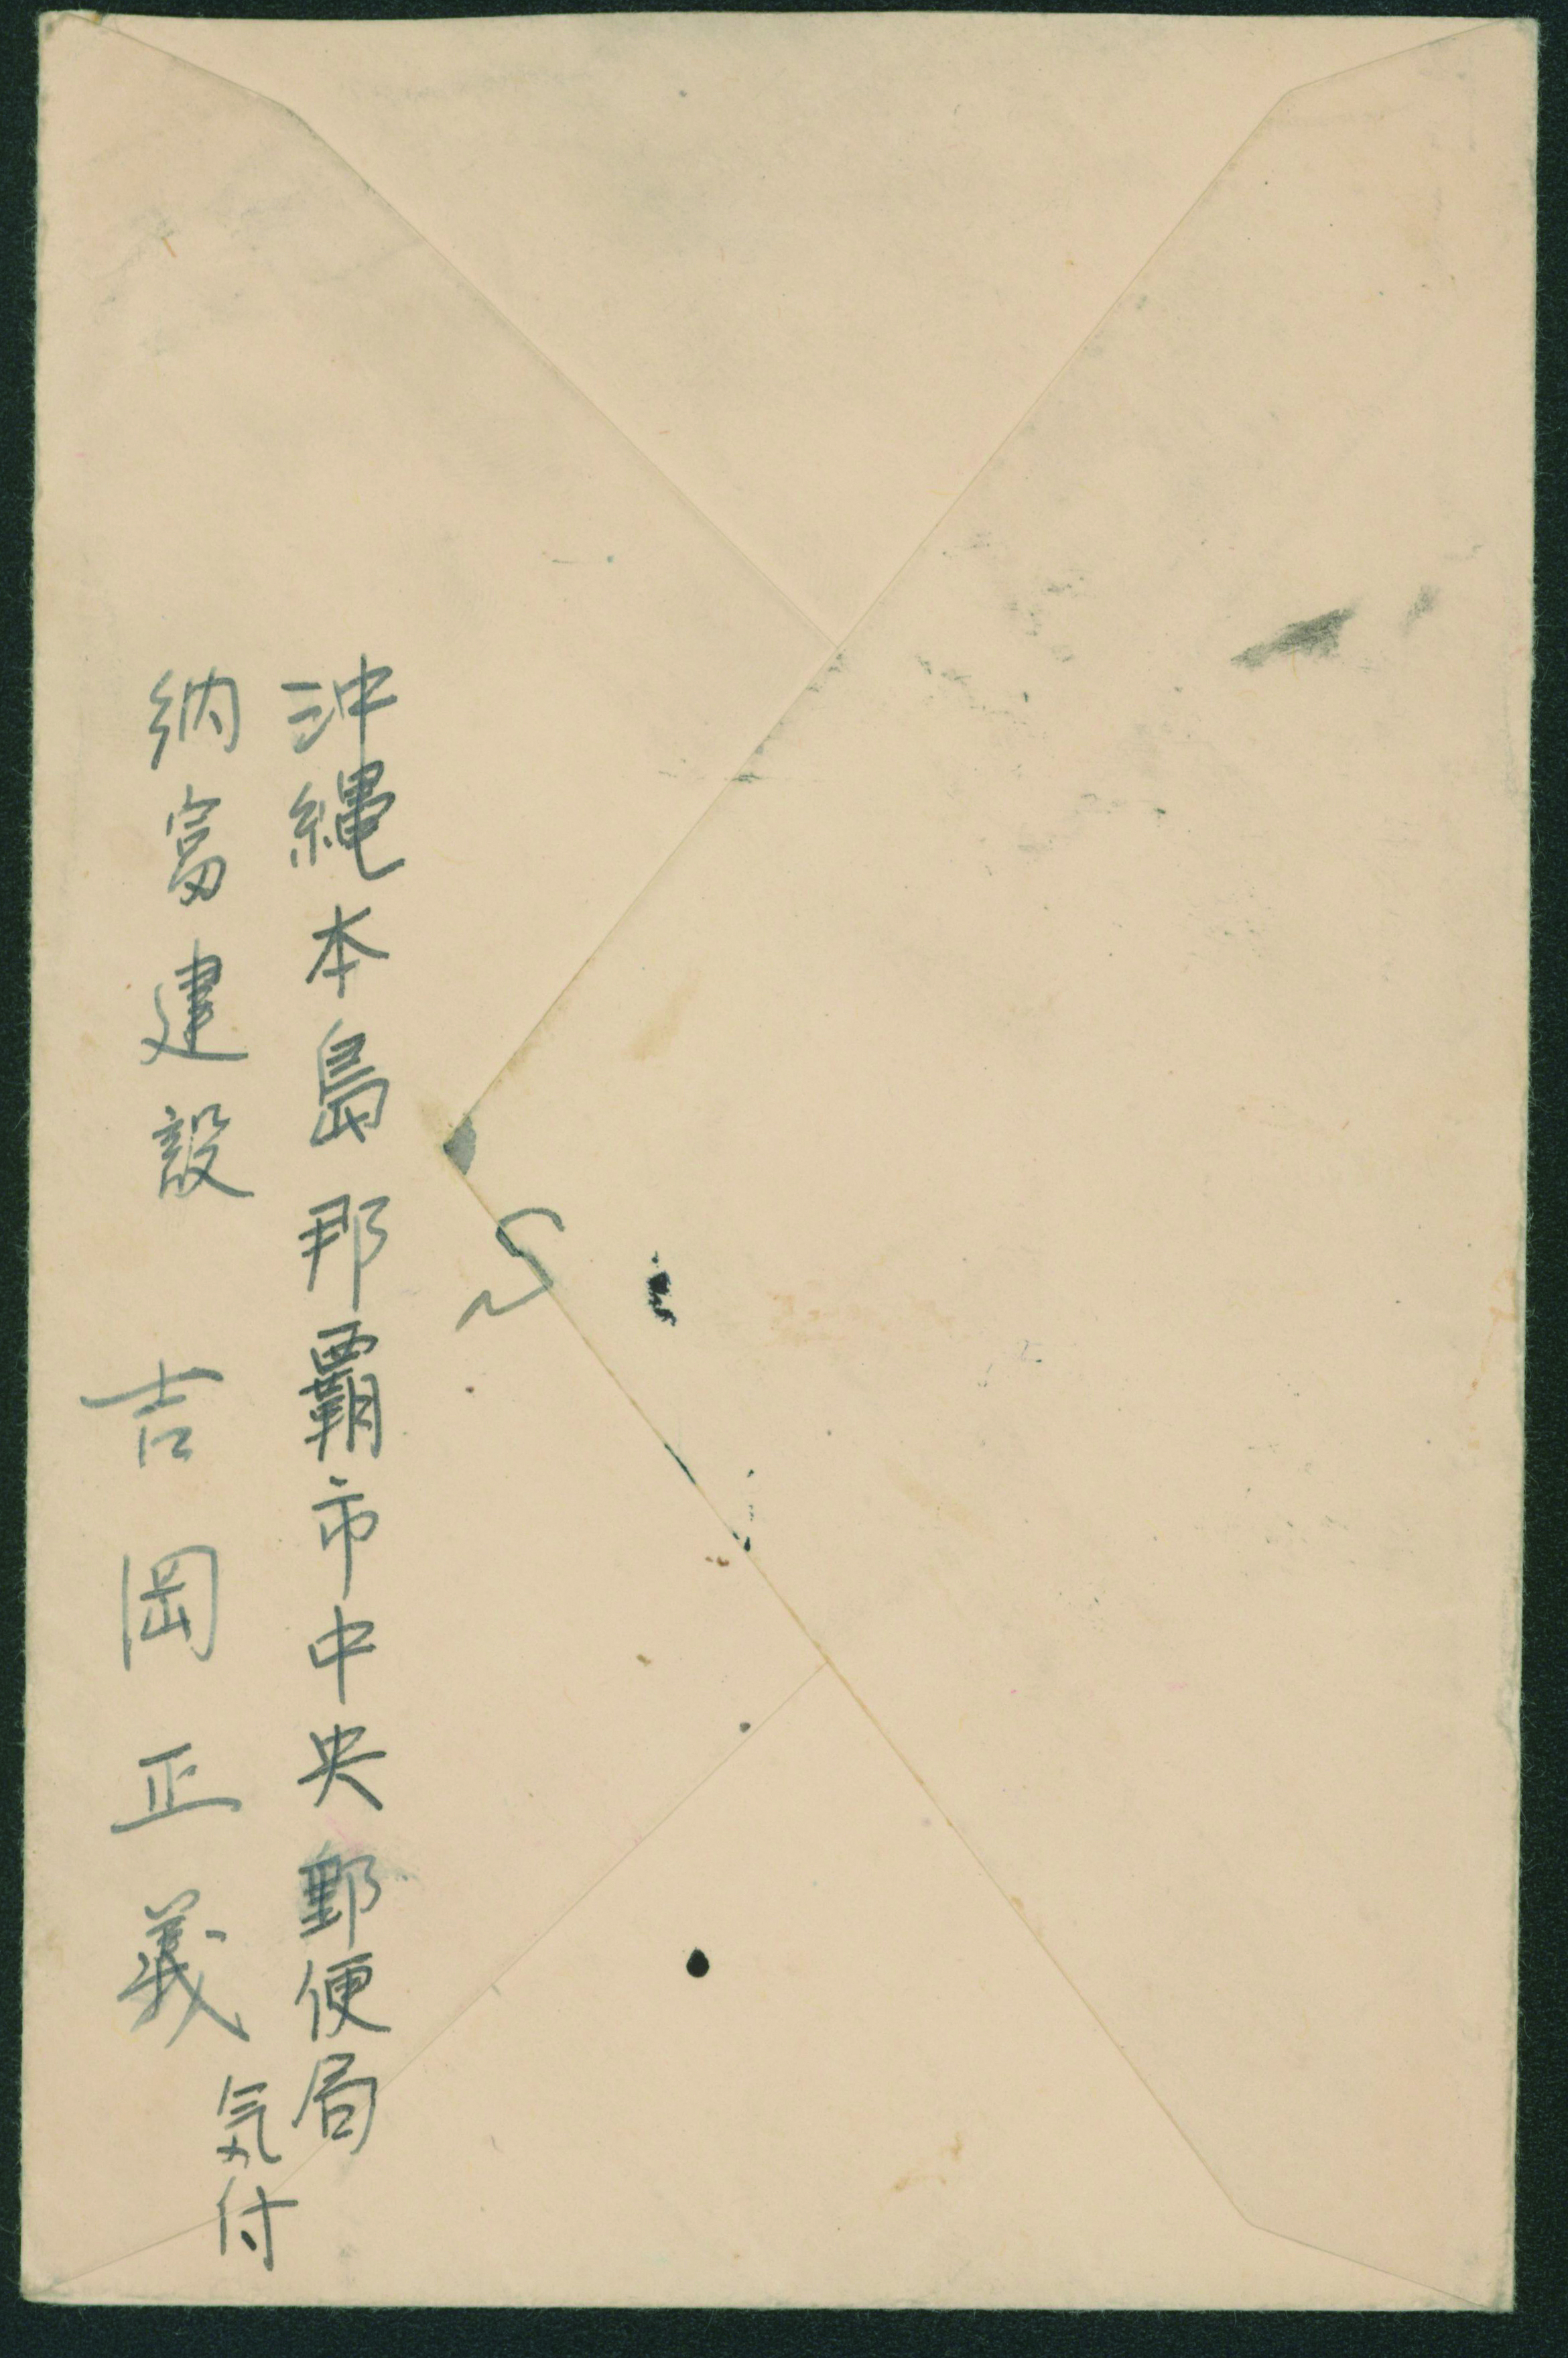 沖縄本島那覇市中央郵便局
気付
納富建設 吉岡正義